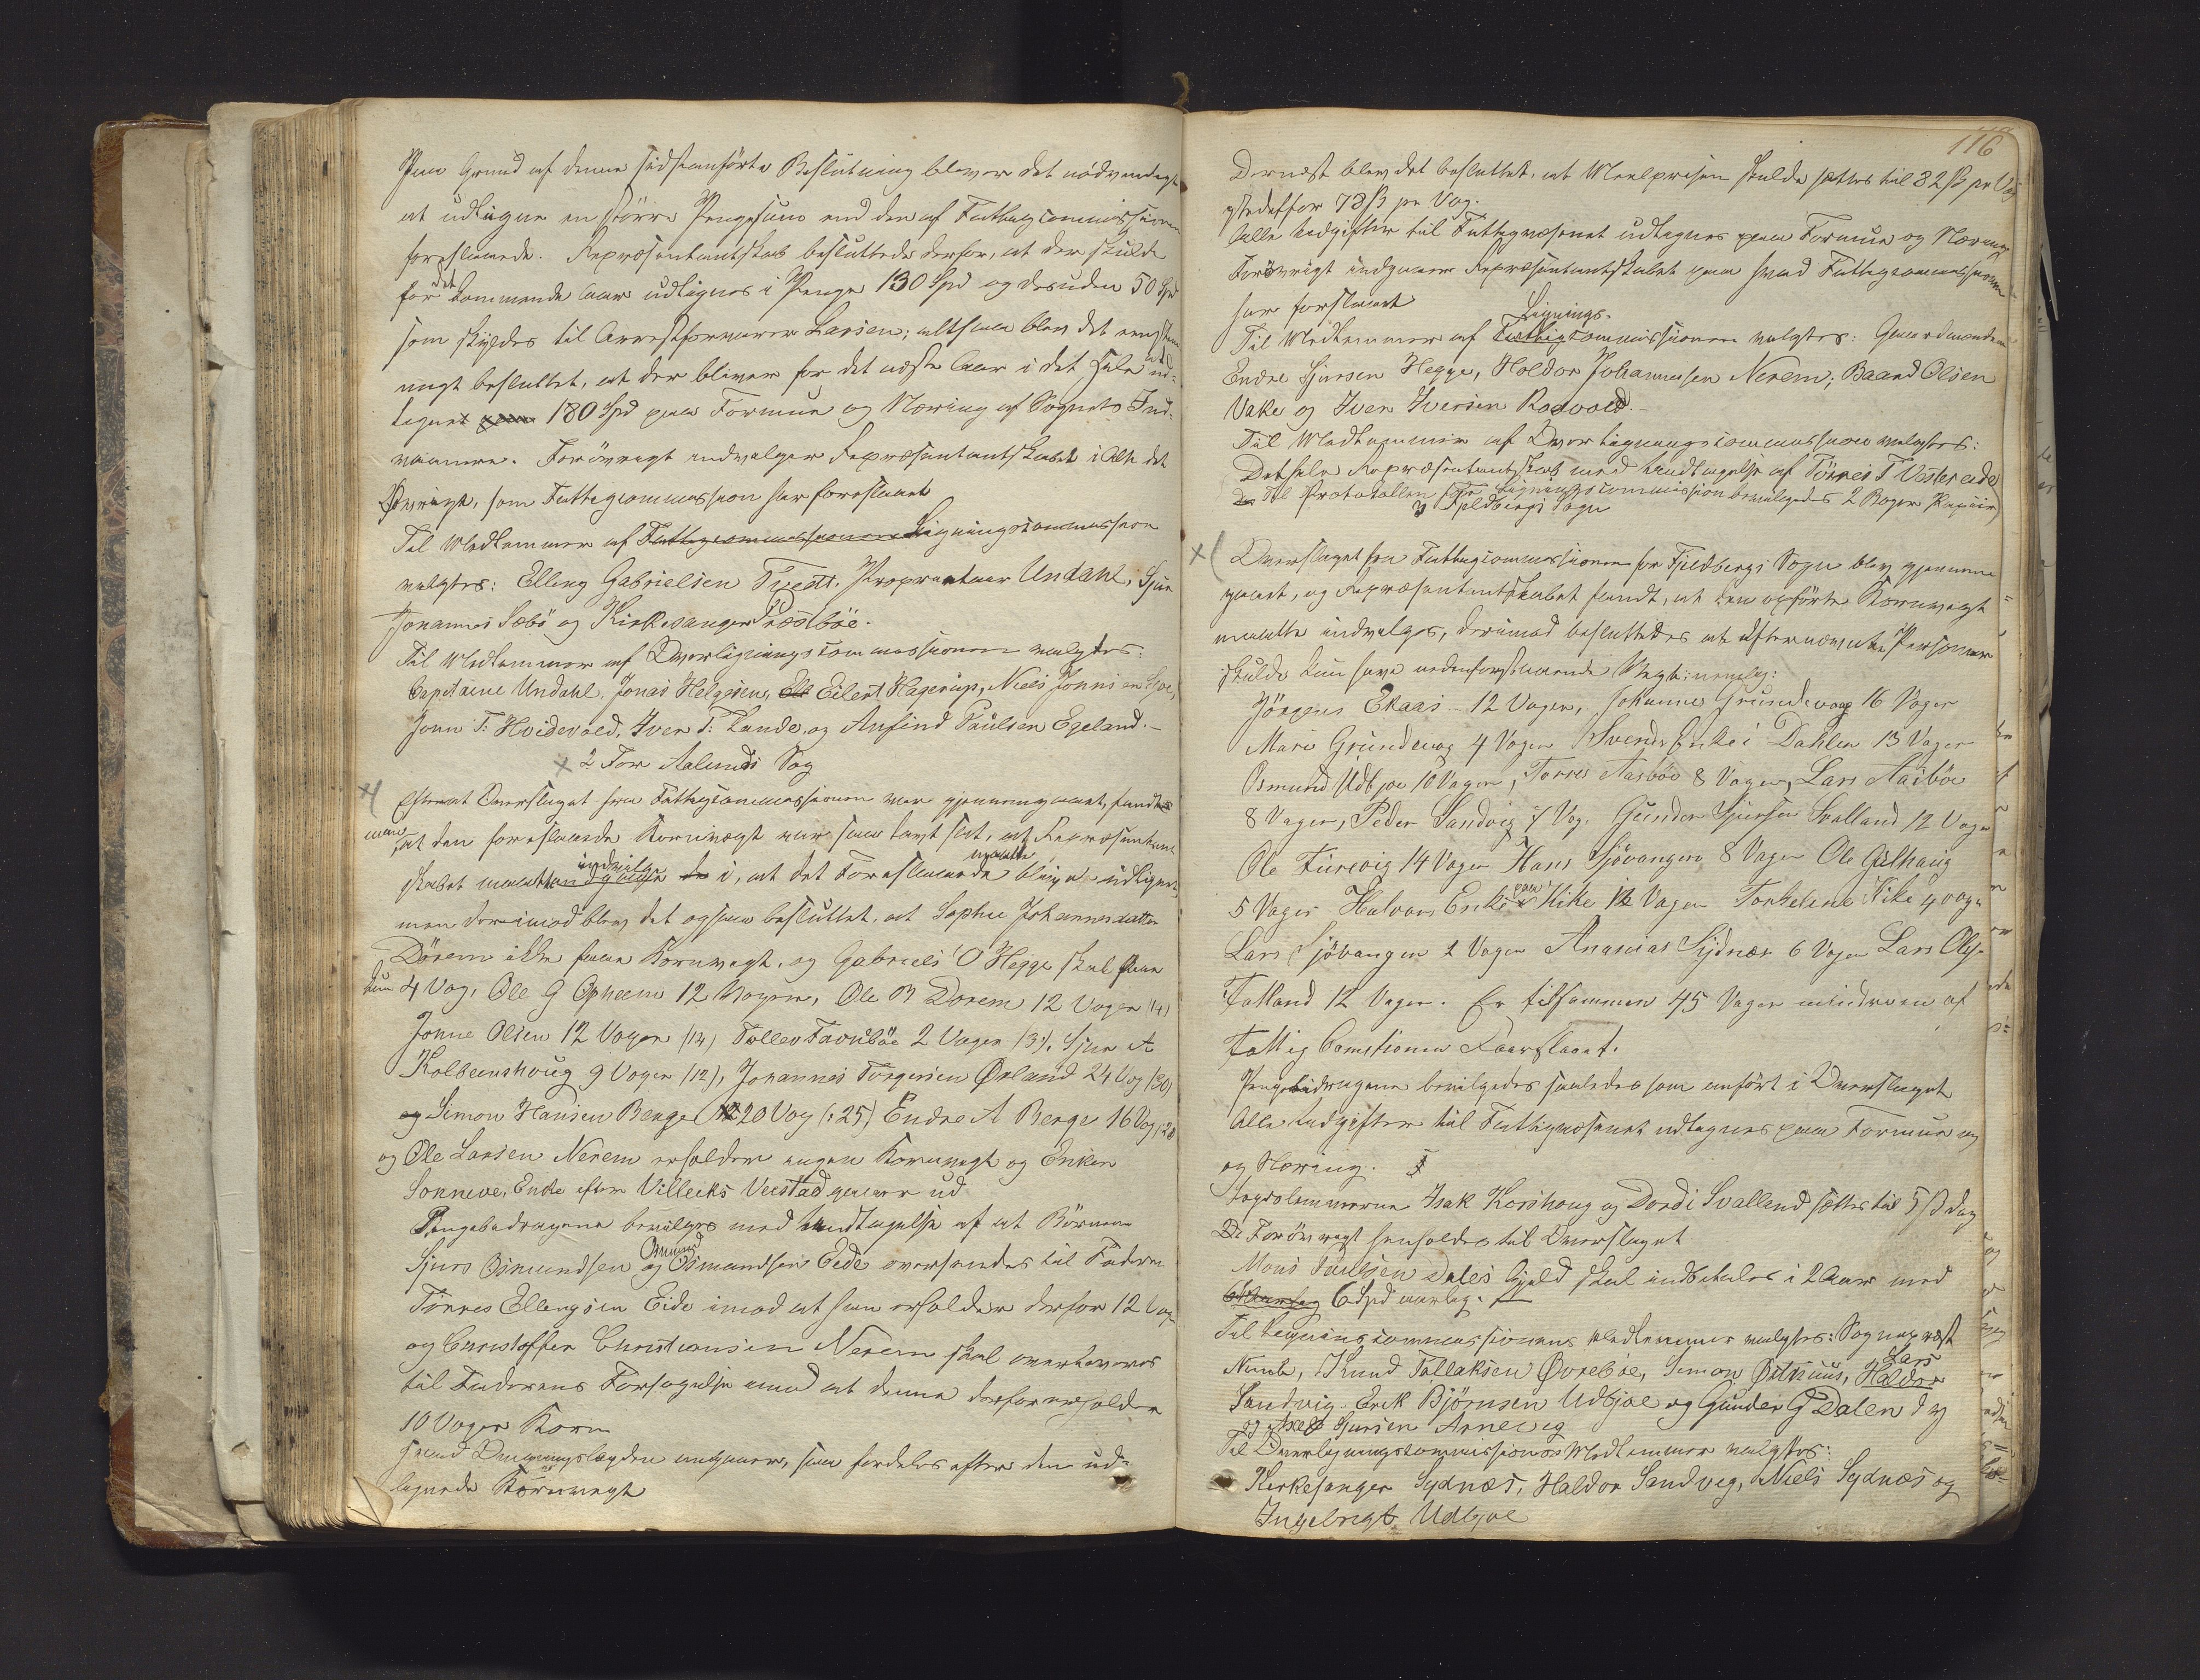 Paa Grund af denne sidstanførte Beslutning bliver det nødvendigt
at udligne en større Pengesum end den af Fattigcommissionen
foreslaaede. Repræsentantskab besluttede derfor, at der skulde
for det kommende Aar udlignes i Penge 130 Spd og desuden 50 Spd
som skyldes til Arrestforvarer Larsen; altsaa blev det eenstem-
migt besluttet, at der bliver for det næste Aar i det Hele ud-
lignet paa 180 Spd paa Formue og Næring af Sognets Ind-
vaanere. Forøvrigt indvilger Repræsentantskabet i Alt det
Øvrige, som Fattigcommission har foreslaaet
Til Medlemmer af Fattigcommissionen Ligningscommission
valgtes: Elling Gabrielsen Tvedt, Proprietær Undahl, Sjur
Johannes Sæbö og Kirkesanger Præstböe.
Til Medlemmer af Overligningscommissionen valgtes:
Capitaine Undahl, Jonas Helgesen, Ell Eilert Hagerup, Niels Jonnsen
Jonn T. Hvidevold, Iver T. Lande, og Anfind Paulsen Egeland.
x 2 For Aalunds Sog
x( Efterat Overslaget fra Fattigcommissionen var gjennemgaaet, fandt
man, at den foreslaaede Kornvægt var saa lavt sat, at Repræsentant
skabet maatte indgaae indvilge de i, at det Foreslaaede maatte blive udlignet
men derimod blev det ogsaa besluttet, at Sophie Johannesdatter
Dörem ikke faaer Kornvægt, og Gabriels O Hegge skal faae
kun 4 Vog, Ole G Opheim 12 Voger, Ole B Dorem 12 Voger (14)
Jonne Olsen 12 Voger (14) Tollev Tavnböe 2 Voger (3), Sjur A
Kolbeenshoug 9 Voger (12), Johannes Torgersen Øvland 24 Vog (30)
og Simon Hansen Berge 20 Vog (25) Endre A Berge 16 Vog (20
og Ole Larsen Nerem erholder ingen Kornvægt og Enken
Sonneve, Enke efter Villecks Veestad gaaer ud
Pengebidragene bevilges med Undtagelse af at Börnene
Sjurs Osmundsen og Osmund Osmundsen Eide oversendes til Faderen
Tönnes Ellingsen Eide imod at han erholder derfor 12 Vog
og Christoffer Christiansen Nerem skal overleveres
til Faderens Forsørgelse imod at denne derfor erholder
10 Voger Korn
Hvad Omgangslægden angaaer, saa fordeles efter den ud-
lignede Kornvægt
116
Dernæst blev det besluttet, at Meelprisen skulde sættes til 82 ß pr Vog
istedetfor 78 ß pr Vog.
Alle Udgifter til Fattigvæsenet udlignes paa Formue og Næring
Forøvrigt indgaaer Repræsentantskabet paa hvad Fattigcommissionen
har foreslaaet
Til Medlemmer af Fattig Lignings-commissionen valgtes: Gaardmændene
Endre Sjursen Hegge, Holdor Johannesen Nerem, Baard Olsen
Vake og Iver Iversen Rodvold.
Til Medlemmer af Overligningscommission valgtes:
Det hele Repræsentantskab med Undtagelse af Tönnes T Vestereide
Til Protokollen for Ligningscommission bevilgedes 2 Boger Papiir
3 Fjeldbergs Sogn
x( Overslaget fra Fattigcommissionen for Fjeldbergs Sogn blev gjennem-
gaaet, og Repræsentantskabet fandt, at den opførte Kornvægt
maatte indvilges, derimod besluttedes at efternævnte Personer
skulde kun have nedenforstaaende Vægt: nemlig:
Jörgens Ekaas 12 Voger, Johanne Grundevog 16 Voger
Mari Grundevog 4 Voger Svends Enke i Dahlen 13 Voger
Osmund Udbjoe 10 Voger, Torres Aasböe 8 Voger, Lars Aasböe
8 Voger, Peder Sandvig 7 Vog. Gunder Sjursen Svalland 12 Voger
Ole Furevig 14 Voger Hans Sjövangen 8 Voger Ole Gilhaug
5 Voger Halvors Enke paa Hike 12 Voger Torkeline Hike 4 Voger
Lars Sjövangen 2 Voger Ananias Sydnæs 6 Voger Lars Ols.
Tatland 12 Voger. Er tilsammen 45 Voger mindre en af
Fattig Comitionen Foorslaaet.
Pengebidragene bevilgedes saaledes som anført i Overslaget
Alle Udgifter til Fattigvæsenet udlignes paa Formue og
og Næring.
Sognelemmerne Isak Korshoug og Dordi Svalland sættes til 5 ß Dag
Forøvrigt henholdes til Overslaget
Mons Paulsen Dales Gjeld skal indbetales i 2 Aar med
6 Spd aarlig.
Til Ligningscommissionens Medlemmer valgtes: Sognepræst
Knud Tollaksen Øvreböe, Simon Östhuus, Haldor Lars
Sandvig, Erik Björnsen Udbjoe og Gunder G Dalen
og Axel Gursen Arnevig
Til Overligningscommissionens Medlemmer valgtes:
Kirkesanger Sydnæs, Haldor Sandvig, Niels Sydnæs og
Ingebrigt Udbjoe